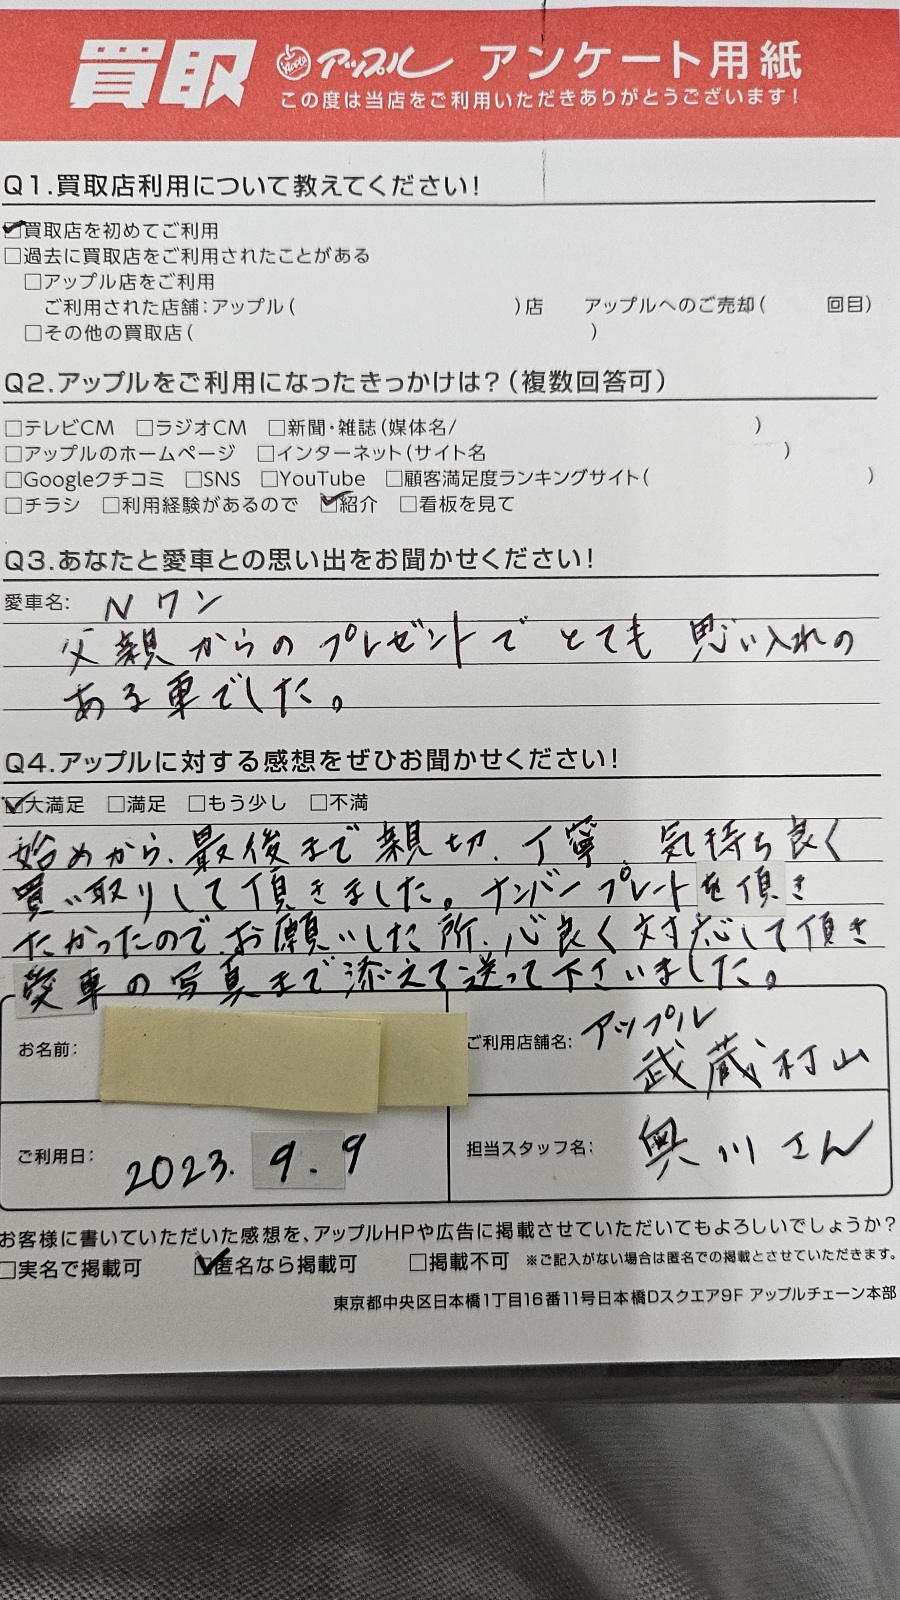 買取 Apple アップル アンケート用紙
この度は当店をご利用いただきありがとうございます!
Q1.買取店利用について教えてください!
☑買取店を初めてご利用
□過去に買取店をご利用されたことがある
□アップル店をご利用
ご利用された店舗:アップル( )店 アップルへのご売却( 回目)
□その他の買取店( )
Q2.アップルをご利用になったきっかけは?(複数回答可)
□テレビCM □ラジオCM □新聞・雑誌(媒体名/ )
□アップルのホームページ □インターネット(サイト名 )
□Googleクチコミ □SNS □YouTube □顧客満足度ランキングサイト( )
□チラシ □利用経験があるので ☑紹介 □看板を見て
Q3.あなたと愛車との思い出をお聞かせください!
愛車名: Nワン
父親からのプレゼントでとても思い入れの
ある車でした。
Q4.アップルに対する感想をぜひお聞かせください!
☑大満足 □満足 □もう少し □不満
始めから、最後まで親切、丁寧、気持ち良く
買い取りして頂きました。ナンバープレートを頂き
たかったので、お願いした所、心良く対応して頂き
愛車の写真まで添えて送って下さいました。
お名前: ご利用店舗名: アップル
武蔵村山
ご利用日: 2023. 9. 9 担当スタッフ名: 奥川さん
お客様に書いていただいた感想を、アップルHPや広告に掲載させていただいてもよろしいでしょうか?
□実名で掲載可 ☑匿名なら掲載可 □掲載不可 ※ご記入がない場合は匿名での掲載とさせていただきます。
東京都中央区日本橋1丁目16番11号日本橋Dスクエア9F アップルチェーン本部